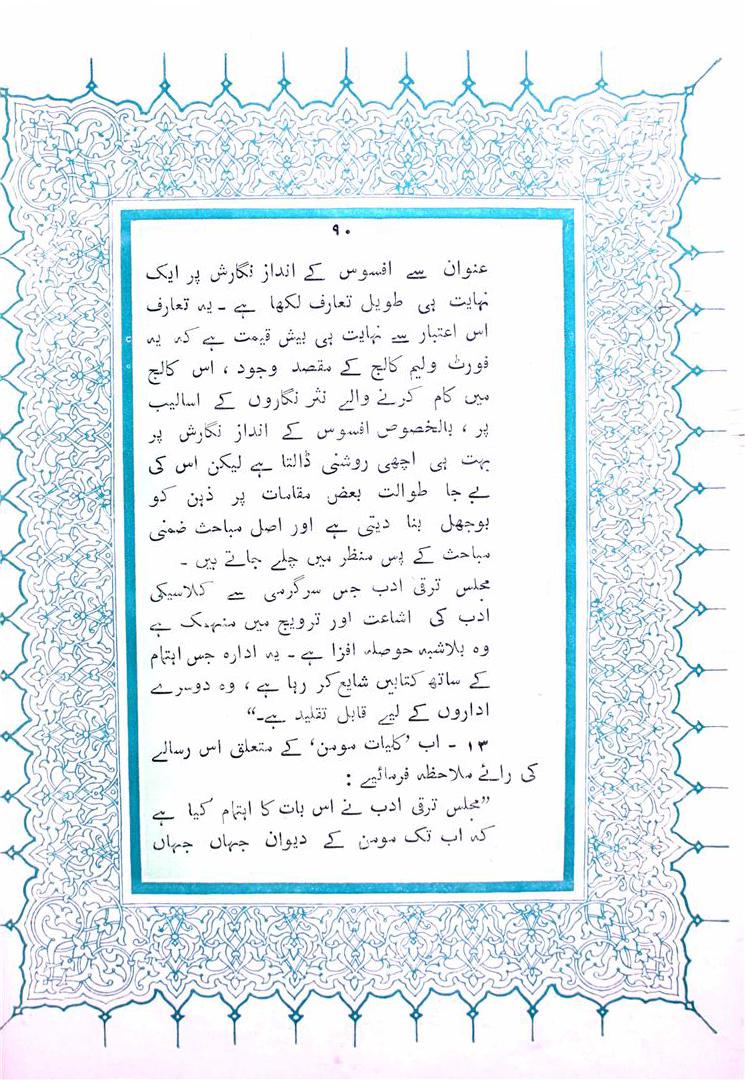 ۹۰
عنوان سے افسوس کے انداز نگارش پر ایک
نہایت ہی طویل تعارف لکھا ہے ۔ یہ تعارف
اس اعتبار سے نہایت ہی بیش قیمت ہے کہ یہ
فورٹ ولیم کالج کے مقصد وجود ، اس کالج
میں کام کرنے والے نثر نگاروں کے اسالیب
پر ، بالخصوص افسوس کے انداز نگارش پر
بہت ہی اچھی روشنی ڈالتا ہے لیکن اس کی
بے جا طوالت بعض مقامات پر ذہن کو
بوجھل بنا دیتی ہے اور اصل مباحث ضمنی
مباحث کے پس منظر میں چلے جاتے ہیں ۔
مجلس ترقی ادب جس سرگرمی سے کلاسیکی
ادب کی اشاعت اور ترویج میں منہمک ہے
وہ بلاشبہ حوصلہ افزا ہے ۔ یہ ادارہ جس اہتمام
کے ساتھ کتابیں شایع کر رہا ہے ، وہ دوسرے
اداروں کے لیے قابل تقلید ہے۔“
۱۳ ۔ اب ’کلیات مومن‘ کے متعلق اس رسالے
کی رائے ملاحظہ فرمائیے :
”مجلس ترقی ادب نے اس بات کا اہتمام کیا ہے
کہ اب تک مومن کے دیوان جہاں جہاں